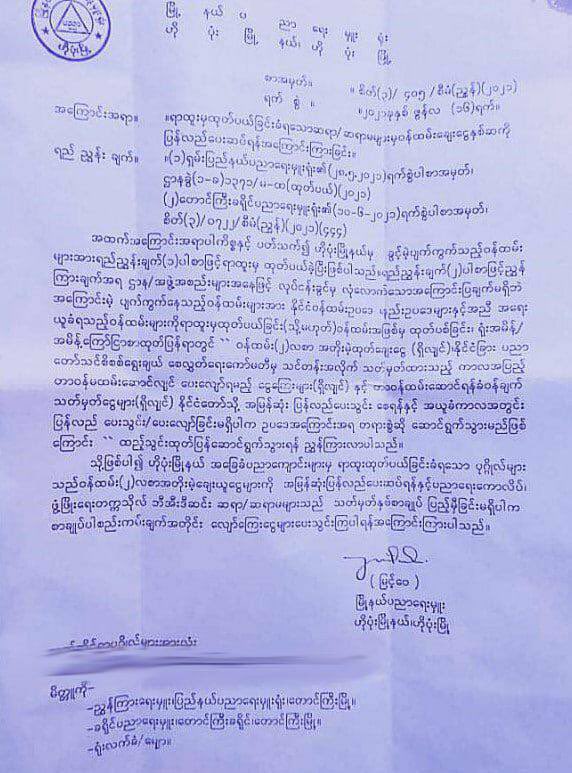 ပညာ
ဟိုပုံးမြို့
မြို့ နယ် ပ ညာ ရေး မှူး ရုံး
ဟို ပုံး မြို့ နယ်၊ ဟို ပုံး မြို့
စာအမှတ်။ ။ စိတ်(၃)/ ၄၀၅ /စီမံ(ညွှန်)(၂၀၂၁)
ရက် စွဲ ။ ။၂၀၂၁ခုနှစ် ဇွန်လ (၁၆)ရက်။
အကြောင်းအရာ။ ။ရာထူးမှထုတ်ပယ်ခြင်းခံရသောဆရာ/ဆရာမများမှဝန်ထမ်းချေးငွေနှစ်ဆကို
ပြန်လည်ပေးဆပ်ရန်အကြောင်းကြားခြင်း။
ရည် ညွှန်း ချက်။ ။(၁)ရှမ်းပြည်နယ်ပညာရေးမှူးရုံး၏(၂၈.၅.၂၀၂၁)ရက်စွဲပါစာအမှတ်၊
ဌာနခွဲ(၁-ခ)၁၃၇၁/မ-ထ(ထုတ်ပယ်)(၂၀၂၁)
(၂)တောင်ကြီးခရိုင်ပညာရေးမှူးရုံး၏(၁၀-၆-၂၀၂၁)ရက်စွဲပါစာအမှတ်၊
စိတ်(၃)/၀၇၂၂/စီမံ(ညွှန်)(၂၀၂၁)(၄၄၄)
အထက်အကြောင်းအရာပါကိစ္စနှင့် ပတ်သက်၍ ဟိုပုံးမြို့နယ်မှ ခွင့်မဲ့ပျက်ကွက်သည့်ဝန်ထမ်း
များအားရည်ညွှန်းချက်(၁)ပါစာဖြင့်ရာထူးမှ ထုတ်ပယ်ခဲ့ပြီးဖြစ်ပါသည်။ရည်ညွှန်းချက်(၂)ပါစာဖြင့်ညွှန်
ကြားချက်အရ ဌာန/အဖွဲ့အစည်းများအနေဖြင့် လုပ်ငန်းခွင်မှ လုံလောက်သောအကြောင်းပြချက်မရှိဘဲ
အကြောင်းမဲ့ ပျက်ကွက်နေသည့်ဝန်ထမ်းများအား နိုင်ငံဝန်ထမ်းဥပဒေ၊နည်းဥပဒေများနှင့်အညီ အရေး
ယူခံရသည့်ဝန်ထမ်းများကိုရာထူးမှထုတ်ပယ်ခြင်း(သို့မဟုတ်)ဝန်ထမ်းအဖြစ်မှ ထုတ်ပစ်ခြင်း၊ ရုံးအမိန့်/
အမိန့်ကြော်ငြာစာထုတ်ပြန်ရာတွင် `` ဝန်ထမ်း(၂)လစာ အတိုးမဲ့ထုတ်ချေးငွေ (ရှိလျှင်)၊နိုင်ငံခြား ပညာ
တော်သင်စိစစ်ရွေးချယ် စေလွှတ်ရေးကော်မတီမှ သင်တန်းအလိုက် သတ်မှတ်ထားသည့် ကာလအပြည့်
တာဝန်မထမ်းဆောင်လျှင် ပေးလျော်ရမည့် ငွေကြေးများ(ရှိလျှင်) နှင့် တာဝန်ထမ်းဆောင်ရန်ခံဝန်ချက်
သတ်မှတ်ငွေများ(ရှိလျှင်) နိုင်ငံတော်သို့ အမြန်ဆုံး ပြန်လည်ပေးသွင်း စေရန်နှင့် အယူခံကာလအတွင်း
ပြန်လည် ပေးသွင်း/ပေးလျော်ခြင်းမရှိပါက ဥပဒေအကြောင်းအရ တရားစွဲဆို ဆောင်ရွက်သွားမည်ဖြစ်
ကြောင်း `` ထည့်သွင်းထုတ်ပြန်ဆောင်ရွက်သွားရန် ညွှန်ကြားလာပါသည်။
သို့ဖြစ်ပါ၍ ဟိုပုံးမြို့နယ် အခြေခံပညာကျောင်းများမှ ရာထူးထုတ်ပယ်ခြင်းခံရသော ပုဂ္ဂိုလ်များ
သည်ဝန်ထမ်း(၂)လစာအတိုးမဲ့ချေးယူငွေများကို အမြန်ဆုံးပြန်လည်ပေးဆပ်ရန်နှင့်ပညာရေးကောလိပ်၊
ဖွံ့ဖြိုးရေးတက္ကသိုလ် ဘီအီးဒီဆင်း ဆရာ/ဆရာမများသည် သတ်မှတ်နှစ်စာချုပ် ပြည့်မှီခြင်းမရှိပါက
စာချုပ်ပါစည်းကမ်းချက်အတိုင်း လျော်ကြေးငွေများပေးသွင်းကြပါရန်အကြောင်းကြားပါသည်။
( မြင့်ဝေ )
မြို့နယ်ပညာရေးမှူး
ဟိုပုံးမြို့နယ်၊ဟိုပုံးမြို့
မိတ္တူကို-
-ညွှန်ကြားရေးမှူး၊ပြည်နယ်ပညာရေးမှူးရုံး၊တောင်ကြီးမြို့။
-ခရိုင်ပညာရေးမှူးရုံး၊တောင်ကြီးခရိုင်၊တောင်ကြီးမြို့။
-ရုံးလက်ခံ/မျှော။